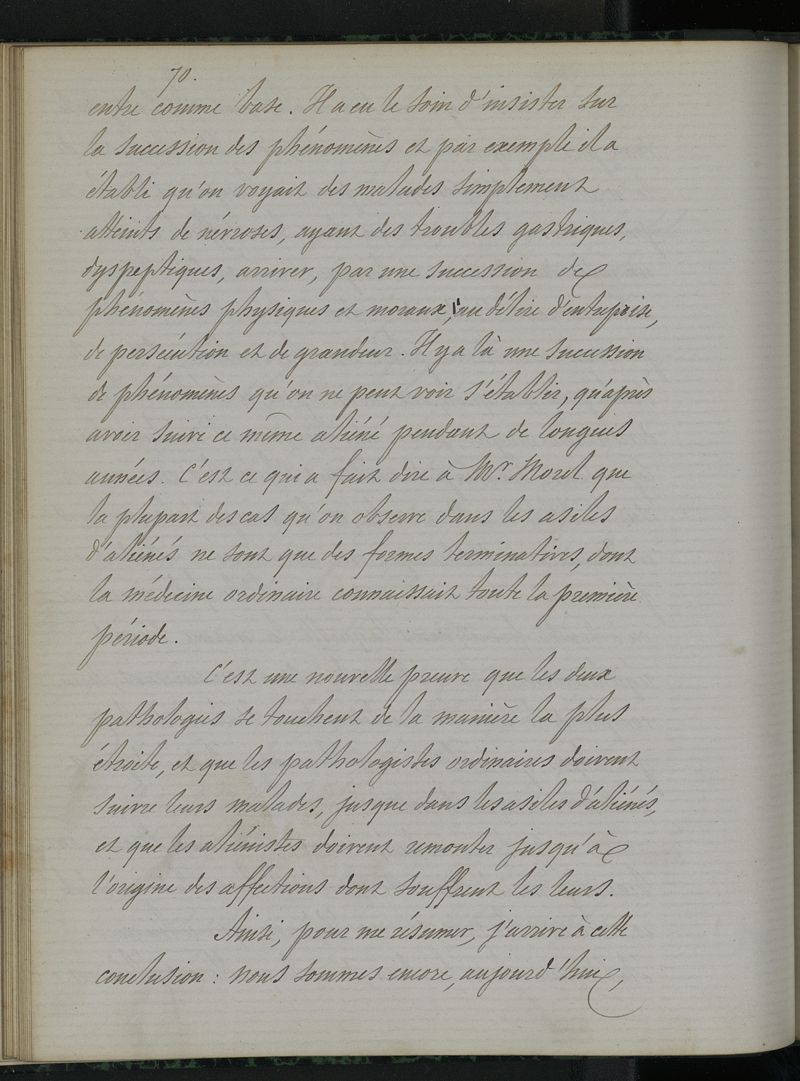 70.
entre comme base. Il a eu le soin d'insister sur
la succession des phénomènes et par exemple il a
établi qu'on voyait des malades simplement
atteints de névroses, ayant des troubles gastriques,
dyspeptiques, arriver, par une succession de
phénomènes physiques et moraux, au délire d'entreprise,
de persécution et de grandeur. Il y a là une succession
de phénomènes qu'on ne peut voir s'établir, qu'après
avoir suivi ce même aliéné pendant de longues
années. C'est ce qui a fait dire à Mr. Morel que
la plupart des cas qu'on observe dans les asiles
d'aliénés ne sont que des formes terminatives, dont
la médecine ordinaire connaissait toute la première
période.
C'est une nouvelle preuve que les deux
pathologies se touchent de la manière la plus
étroite, et que les pathologistes ordinaires doivent
suivre leurs malades, jusque dans les asiles d'aliénés,
et que les aliénistes doivent remonter jusqu'à
l'origine des affections dont souffrent les leurs.
Ainsi, pour me résumer, j'arrive à cette
conclusion : nous sommes encore, aujourd'hui,